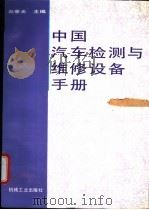 主编
中国
汽车检测与
维修设备
手册
机械工业出版社